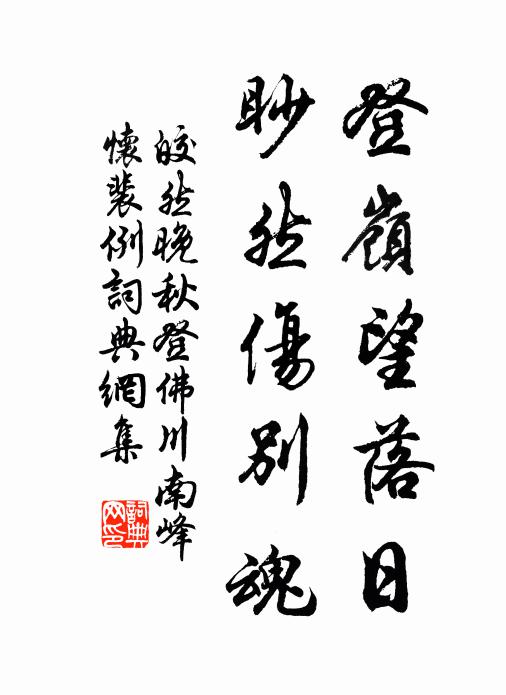 登嶺望落日
眇然傷別魂
皎然晚秋登佛川南峰
懷裴例詞典網集
詞典網印